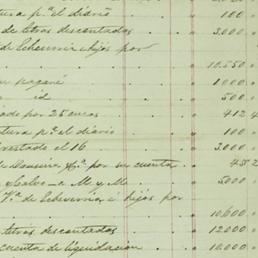 tura pª el diario " 100
de letras descontadas " 3.000
de Echeverria e hijos por
" 10.550
un pagaré " 1.000
" id " 500
ado por 25 encas " 412
tura pª el diario " 100
restado el 16 " 3.000
de Ramirez y Cª por su cuenta 452
y Calvo a M y M " 5000
Vª de Echeverria e hijos por
" 10,600
letras descontadas " 12000
cuenta de liquidacion " 10,000